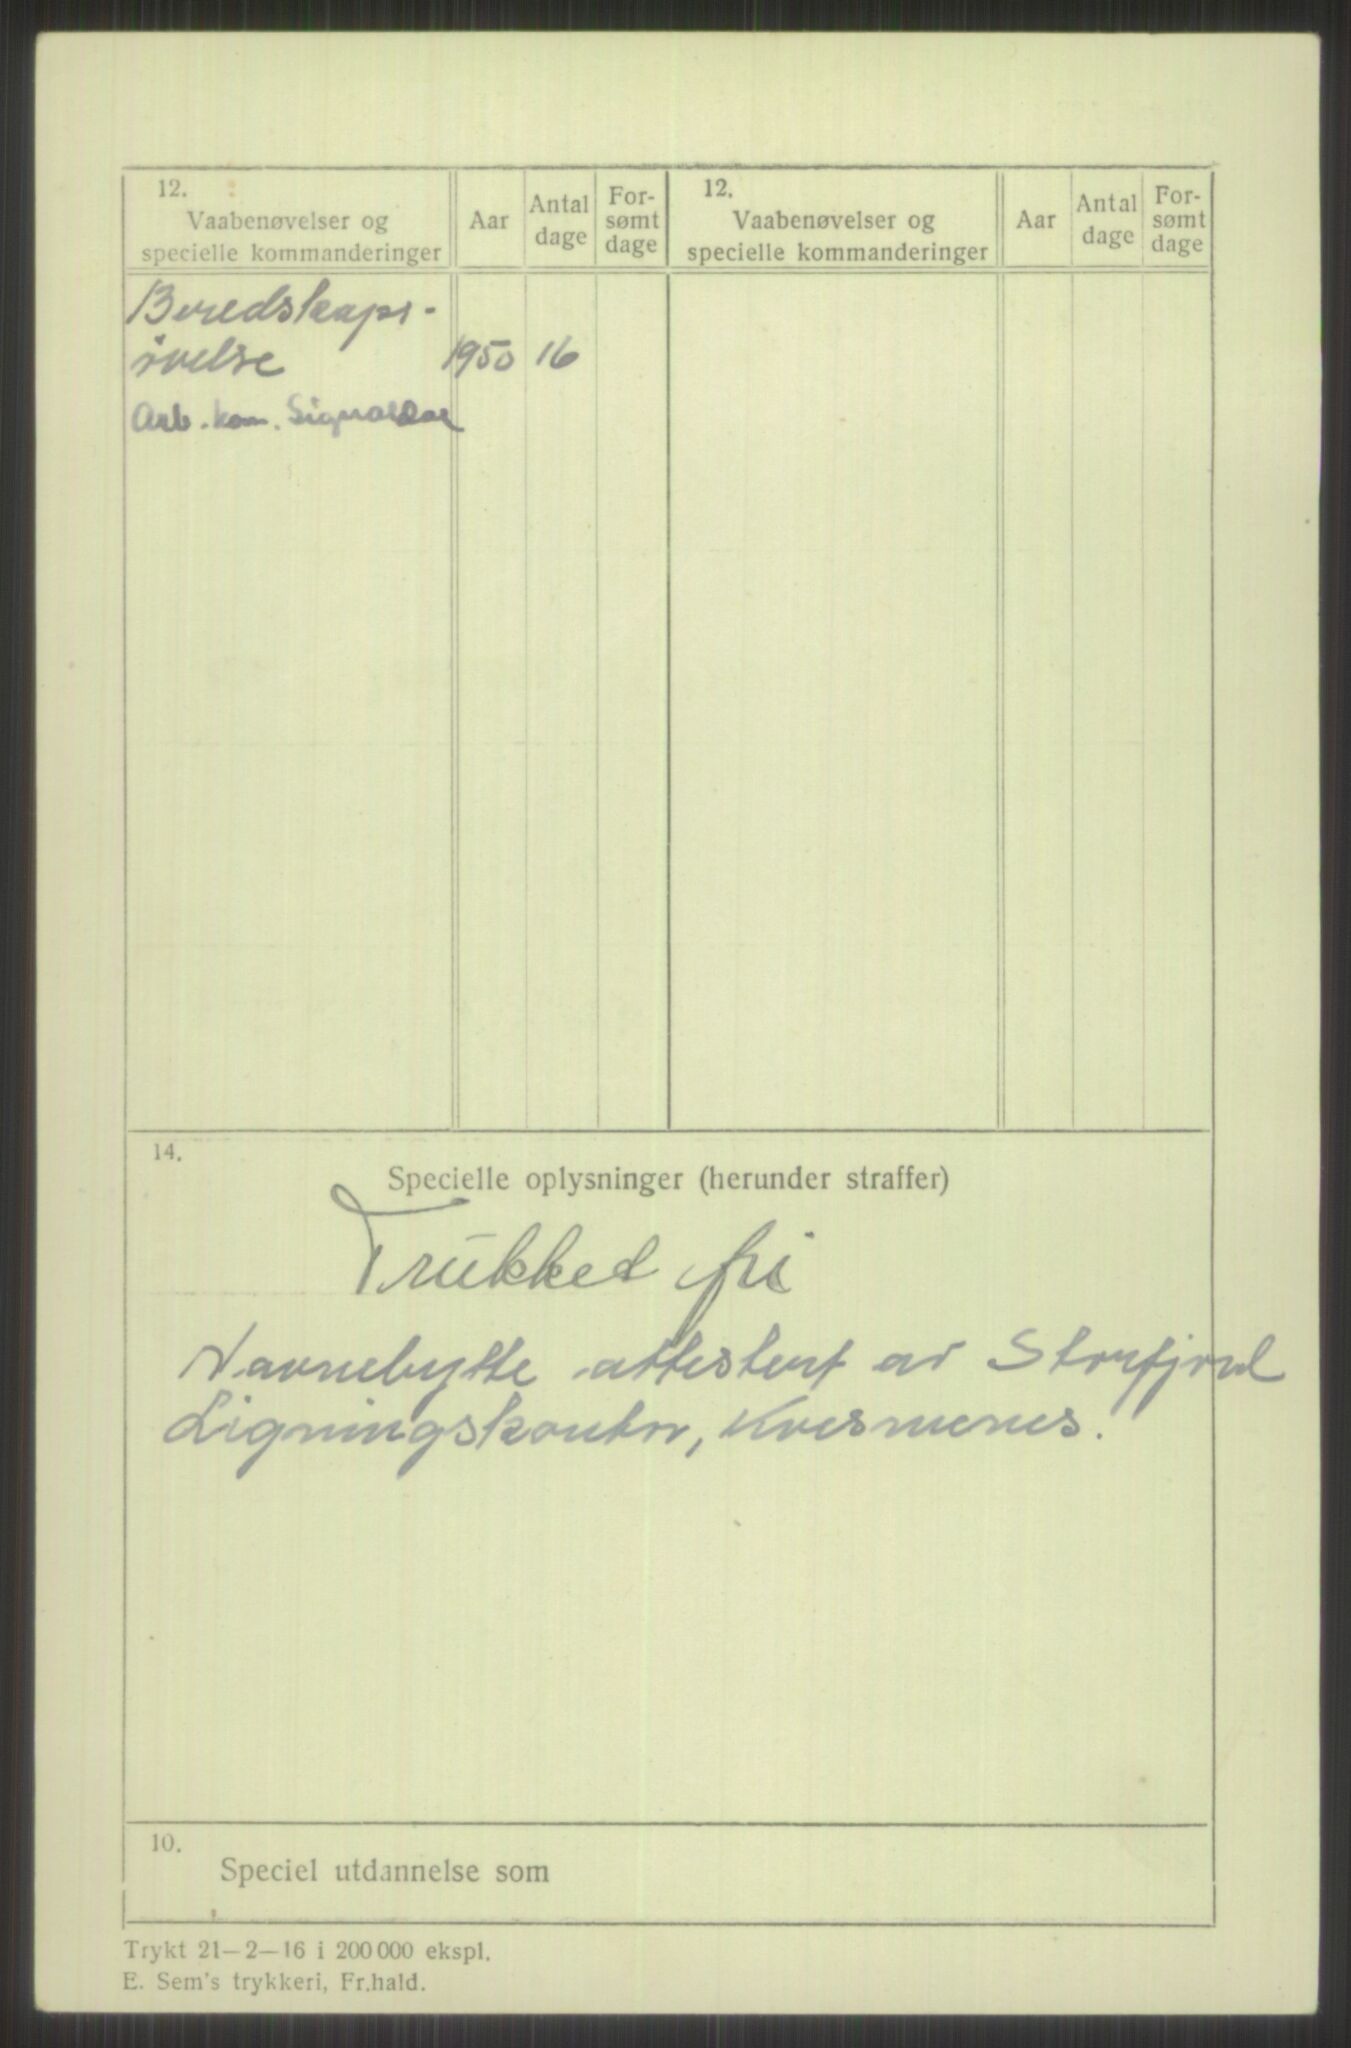 12.
Vaabenøvelser og
specielle kommanderinger
Aar
Antal
dage
For-
sømt
dage
12.
Vaabenøvelser og
specielle kommanderinger
Aar
Antal
dage
For-
sømt
dage
Beredskaps-
øvelse 1950 16
Arb. kom. Signaldal
14.
Specielle oplysninger (herunder straffer)
Trukked fri
Navnebytte attestert av Storfjord
Ligningskontor, Kvesmenes.
10.
Speciel utdannelse som
Trykt 21-2-16 i 200 000 ekspl.
E. Sem's trykkeri, Fr.hald.